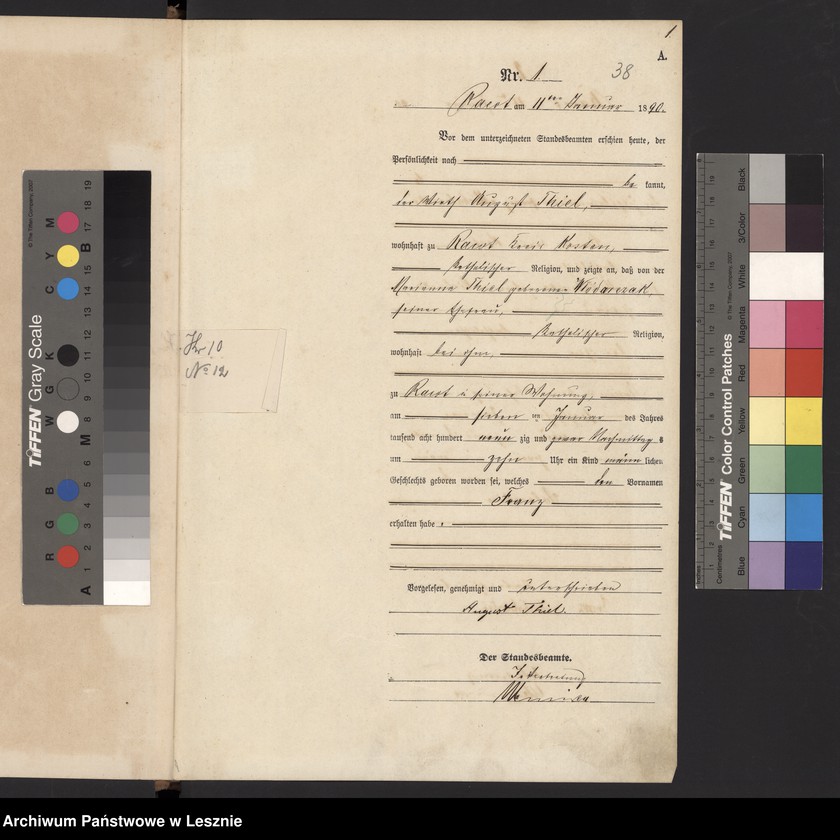 1.
A.
Nr. 1.
38
Racot am 11ten Januar 1890.
Vor dem unterzeichneten Standesbeamten erschien heute, der
Persönlichkeit nach
be kannt,
der Wirth August Thiel,
wohnhaft zu Racot Kreis Kosten,
katholischer Religion, und zeigte an, daß von der
Marianna Thiel geborenen Wódarczak,
seiner Ehefrau,
katholischer Religion,
wohnhaft bei ihm,
zu Racot in seiner Wohnung,
am sieben ten Januar des Jahres
tausend acht hundert neun zig und zwar Nachmittag s
um zehn Uhr ein Kind männ lichen
Geschlechts geboren worden sei, welches den Vornamen
Franz
erhalten habe.
Vorgelesen, genehmigt und unterschrieben
August Thiel.
Der Standesbeamte.
In Vertretung
No 12
TIFFEN Gray Scale
© The Tiffen Company, 2007
R G B W G K C Y M
A 1 2 3 4 5 6 M 8 9 10 11 12 13 14 15 B 17 18 19
TIFFEN Color Control Patches
© The Tiffen Company, 2007
Centimetres
Inches
Blue Cyan Green Yellow Red Magenta White 3/Color Black
Archiwum Państwowe w Lesznie